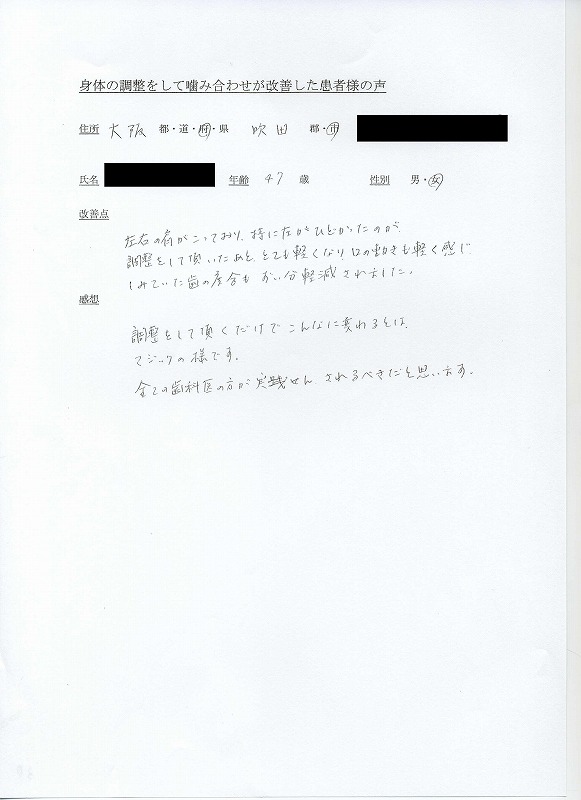 身体の調整をして噛み合わせが改善した患者様の声
住所 大阪 都・道・府・県 吹田 郡・市
氏名 年齢 47 歳 性別 男・女
改善点
左右の肩がこっており、特に左がひどかったのが、
調整をして頂いたあと、とても軽くなり、口の動きも軽く感じ
しみていた歯の度合も ずい分軽減されました。
感想
調整をして頂くだけで こんなに変わるとは、
マジックの様です。
全ての歯科医の方が実践 されるべきだと思います。